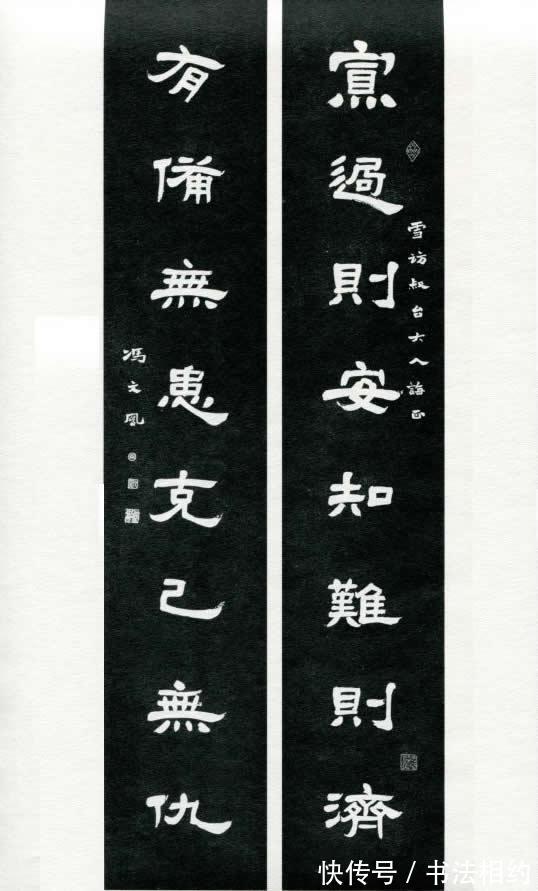 寡過則安知難則濟
雪訪叔台大人誨正
有備無患克己無仇
馮文鳳
快传号 / 书法相约